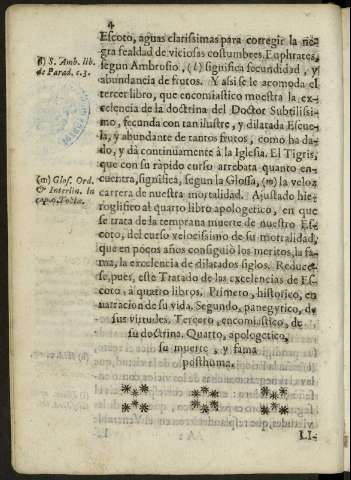 4
Escoto, aguas clarissimas para corregir la ne-
gra fealdad de viciosas costumbres. Euphrates,
segun Ambrosio, (l) significa fecundidad, y
abundancia de frutos. Y assi se acomoda el
tercer libro, que encomiastico muestra la ex-
celencia de la doctrina del Doctor Subtilissi-
mo, fecunda con tan ilustre, y dilatada Escue-
la, y abundante de tantos frutos, como ha da-
do, y dà continuamente à la Iglesia. El Tigris,
que con su ràpido curso arrebata quanto en-
cuentra, significa, segun la Glossa, (m) la veloz
carrera de nuestra mortalidad. Ajustado hie-
roglifico al quarto libro apologetico, en que
se trata de la temprana muerte de nuestro Es-
coto, del curso velocissimo de su mortalidad,
que en pocos años consiguiò los meritos, la fa-
ma, la excelencia de dilatados siglos. Reduce-
se, pues, este Tratado de las excelencias de Es-
coto, à quatro libros. Primero, historico, en
narracion de su vida. Segundo, panegytico, de
sus virtudes. Tercero, encomiastico, de
su doctrina. Quarto, apologetico,
su muerte, y fama
posthuma.
LI-
(l) S. Amb. lib.
de Parad. c.3.
(m) Glos. Ord.
& Interlin. in
cap.6. Tobiæ.